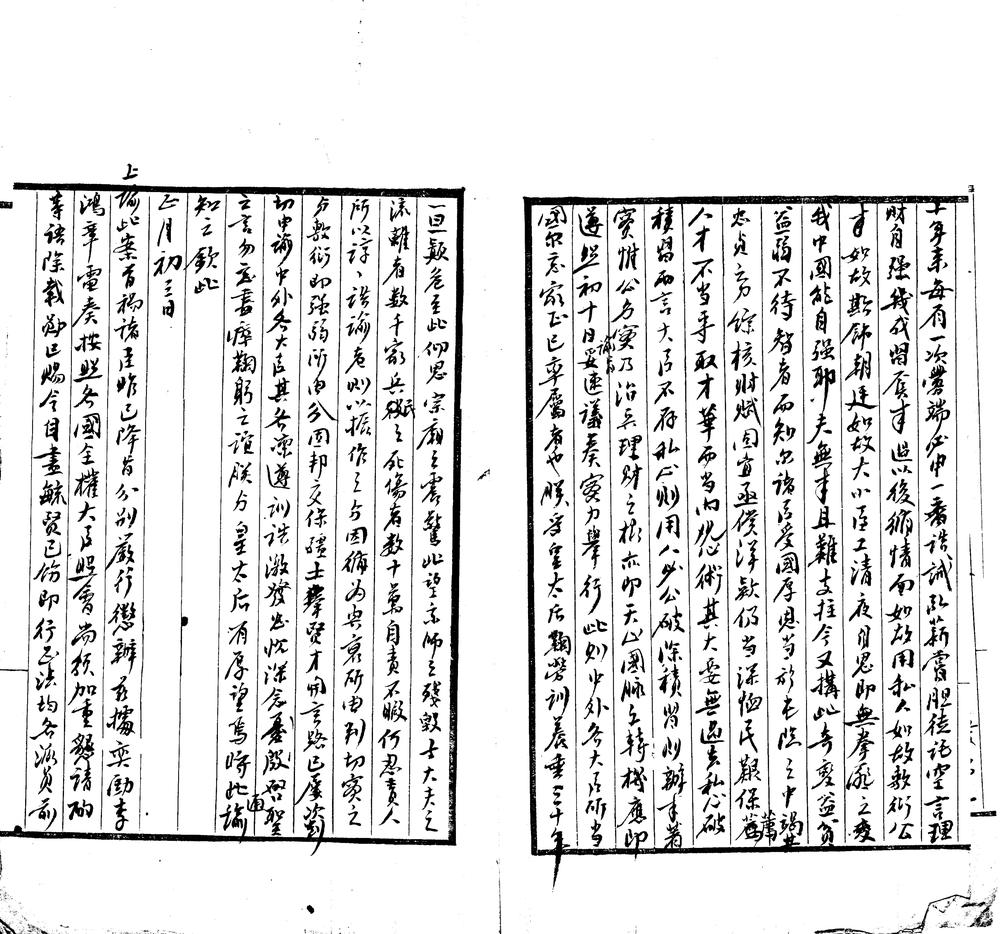 十年来每有一次釁端必申一番誥誡臥薪嘗膽徒託空言理
財自强幾成習套事過以後徇情面如故用私人如故敷衍公
事如故欺飾朝廷如故大小臣工清夜自思即無拳匪之變
我中國能自强耶夫無事且難支拄今又搆此奇變益貧
益弱不待智者而知尔諸臣受國厚恩當於屯險之中竭其
忠貞之力綜核財賦固宜亟償洋款仍當深恤民艱保薦
人才不當專取才華而當內观心術其大要無過去私心破
積習兩言大臣不存私心則用人必公破除積習則辦事著
實惟公与實乃治兵理財之根亦即天心國脉之轉機應即
遵照初十日諭旨妥速議奏實力舉行此則中外各大臣所當
國尔忘家正己率屬者也朕受皇太后鞠勞訓養垂三十年
一旦顛危至此仰思宗廟之震驚北望京師之殘毀士大夫之
流離者數千家兵民之死傷者數十萬自責不暇何忍責人
所以諄々誥諭者則以振作之与因循为興衰所由判切實之
与敷衍即强弱所由分固邦交保疆土舉賢才開言路已屢次剴
切申諭中外各大臣其各凛遵訓誥激發忠忱深念憂殷啓聖
之言勿忘盡瘁鞠躬之誼朕与皇太后有厚望焉將此通諭
知之欽此
正月初三日
上諭此案首禍諸臣昨已降旨分別嚴行懲辦兹據奕劻李
鴻章電奏按照各國全權大臣照會尚須加重懇請酌
等語除載勛已賜令自盡毓賢已飭即行正法均各派員前